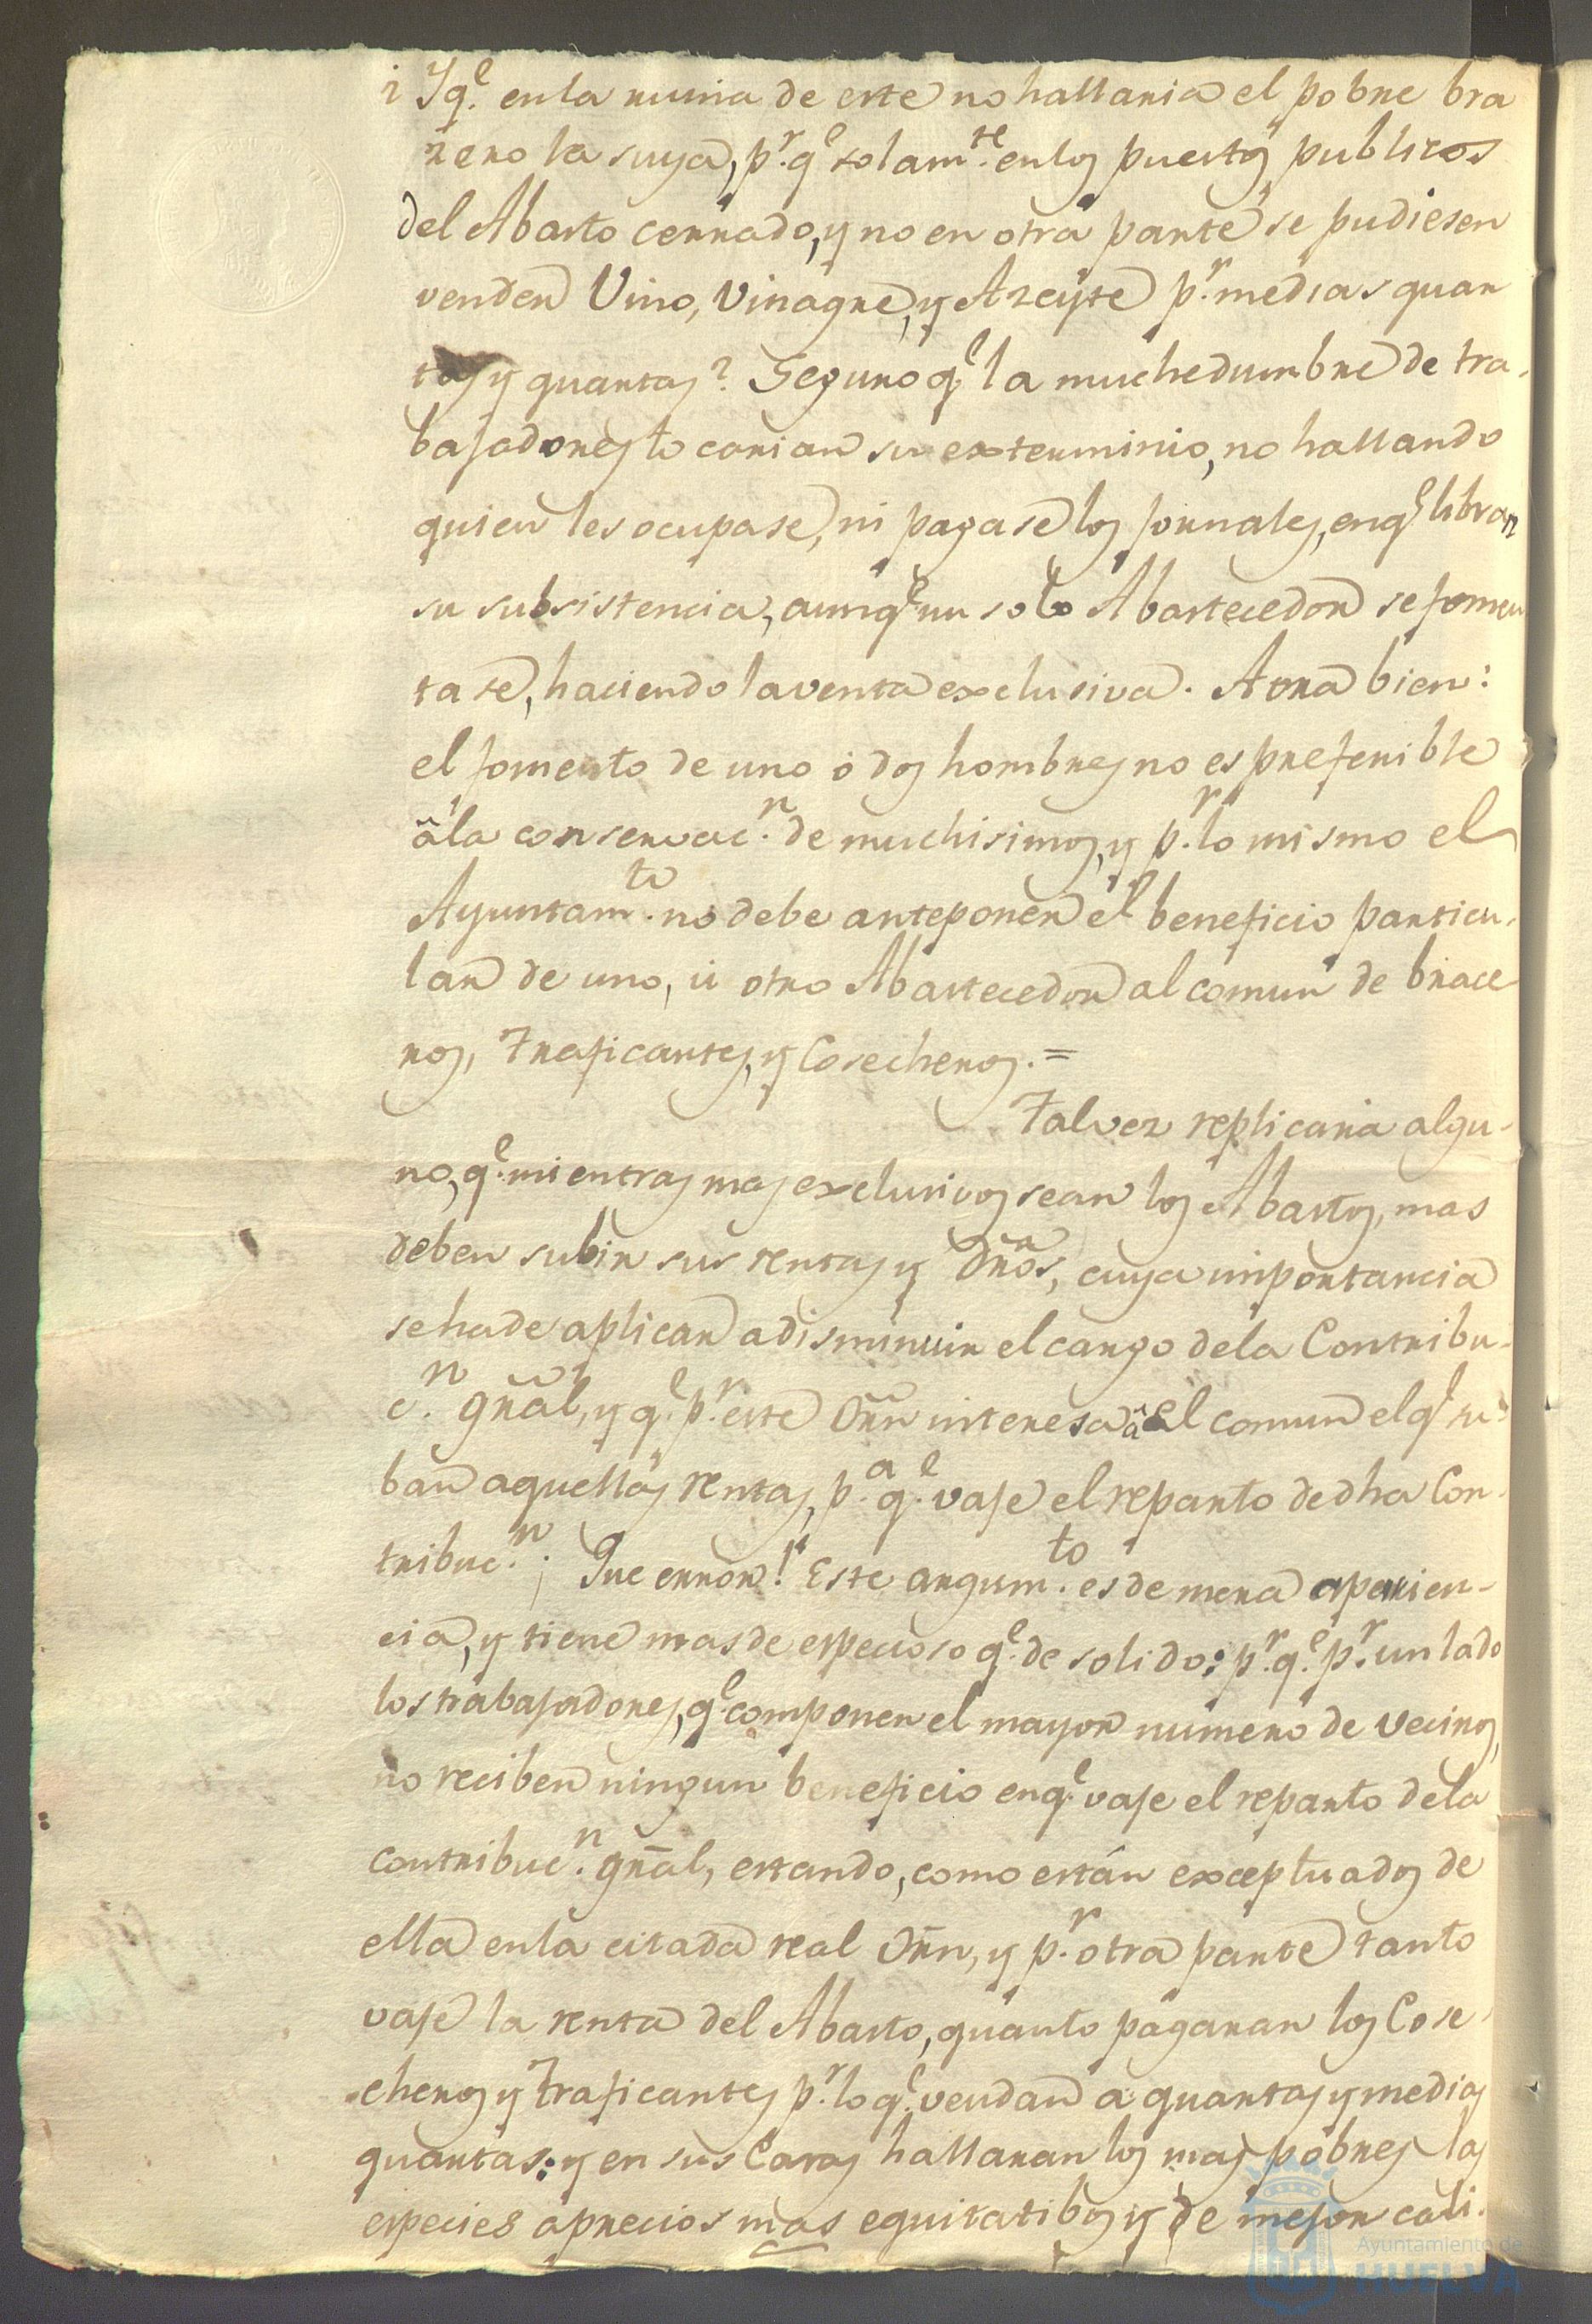 i Yq.e en la ruina de este no hallaria el pobre bra
zero la suya, p.r q.e solam.te en los puestos publicos
del Abasto cerrado, y no en otra parte se pudiesen
vender Vino, Vinagre, y Azeyte p.r medias quar
tas y quartas? Seguro q.e la muchedumbre de tra-
bajadores tocarian su exterminio, no hallando
quien les ocupase, ni pagase los jornales, en q.e libran
su subsistencia, aunq.e un solo Abastecedor se fomen
tase, haciendo la venta exclusiva. Aora bien:
el fomento de uno o dos hombres no es preferible
â la conservac.n de muchisimos, y p.r lo mismo el
Ayuntam.to no debe anteponer el beneficio particu-
lar de uno, ú otro Abastecedor al comun de brace-
ros, Traficantes, y Cosecheros.=
Talvez replicaria algu-
no, q.e mientras mas exclusivos sean los Abastos, mas
deben subir sus rentas y dr̃os, cuya importancia
se ha de aplicar a disminuir el cargo de la Contribu-
c.n gr̃al, y q.e p.r este Or̃n interesa â el comun el q.e su-
ban aquellas rentas, p.a q.e vaje el reparto de dha Con-
tribuc.n; Que error! Este argum.to es de mera aparien-
cia, y tiene mas de especioso q.e de solido: p.r q.e p.r un lado
los trabajadores, q.e componen el mayor numero de vecinos,
no reciben ningun beneficio en q.e vaje el reparto de la
contribuc.n gr̃al, estando, como están exceptuados de
ella en la citada real Or̃n, y p.r otra parte tanto
vaje la renta del Abasto, quanto pagaran los Cose-
cheros y Traficantes p.r lo q.e vendan a quartas y medias
quartas: y en sus Casas hallaran los mas pobres las
especies a precios mas equitatibos y de mejor cali-
Ayuntamiento de
HUELVA